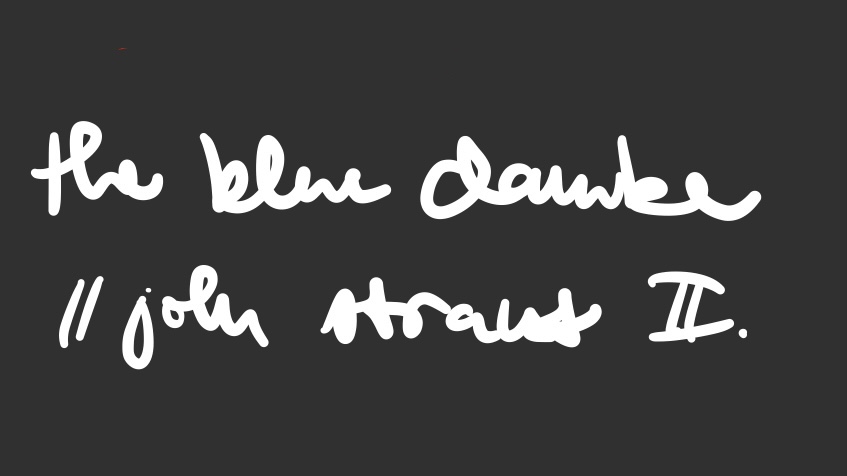 the blue daunbe
// john straus II.